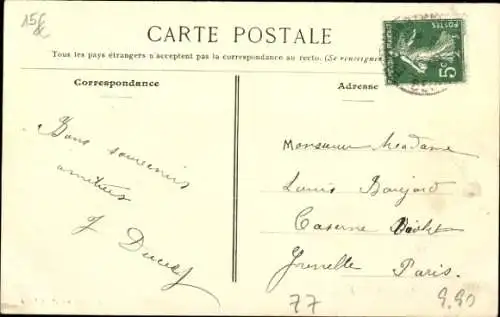 15€
CARTE POSTALE
Tous les pays étrangers n'acceptent pas la correspondance au recto. (Se renseigner
Correspondance
Adresse
POSTES
5c
Bons souvenirs
amitiés
J
Monsieur Madame
Louis
Caserne
Grenelle Paris.
77
9.90